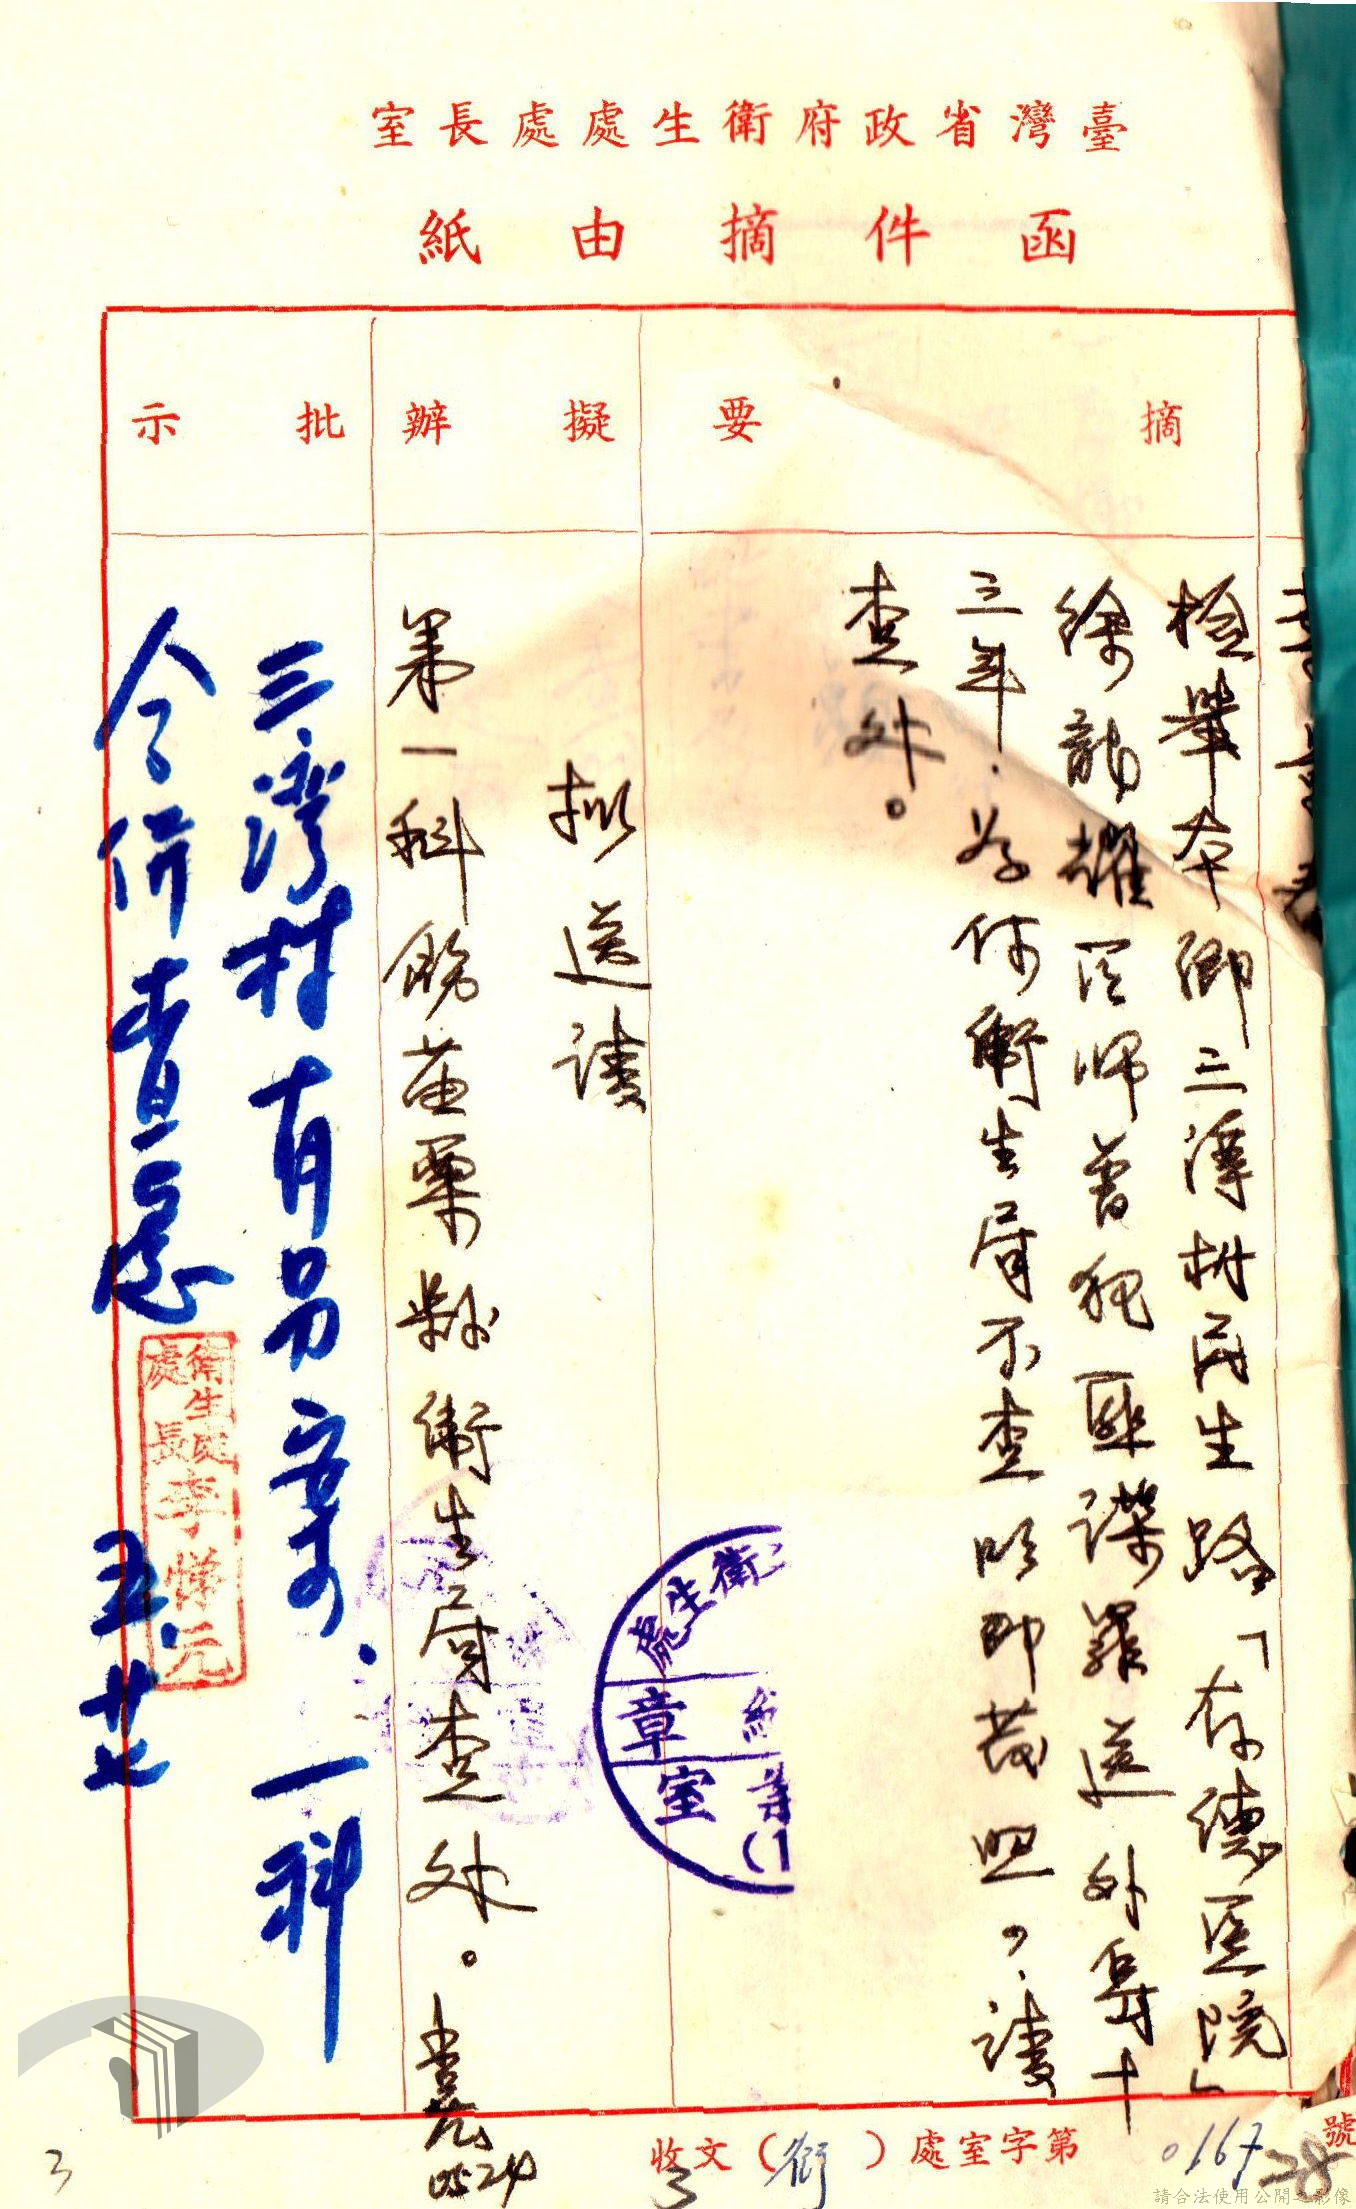 臺灣省政府衛生處處長室
函件摘由紙
摘要
檢舉本鄉三灣村民生路「存德医院」
徐龍耀医师曾犯匪諜罪送外島十
三年，為何衛生局不查明即發照，請
查处。
擬辦
擬送請
第一科飭苗栗縣衛生局查处。
0524
批示
三灣村有另案，一科
令併查处
五、廿七
衛生處處長李悌元
衛生處
章
室
收文（衛）處室字第0167號
28
3
3
請合法使用公開之影像